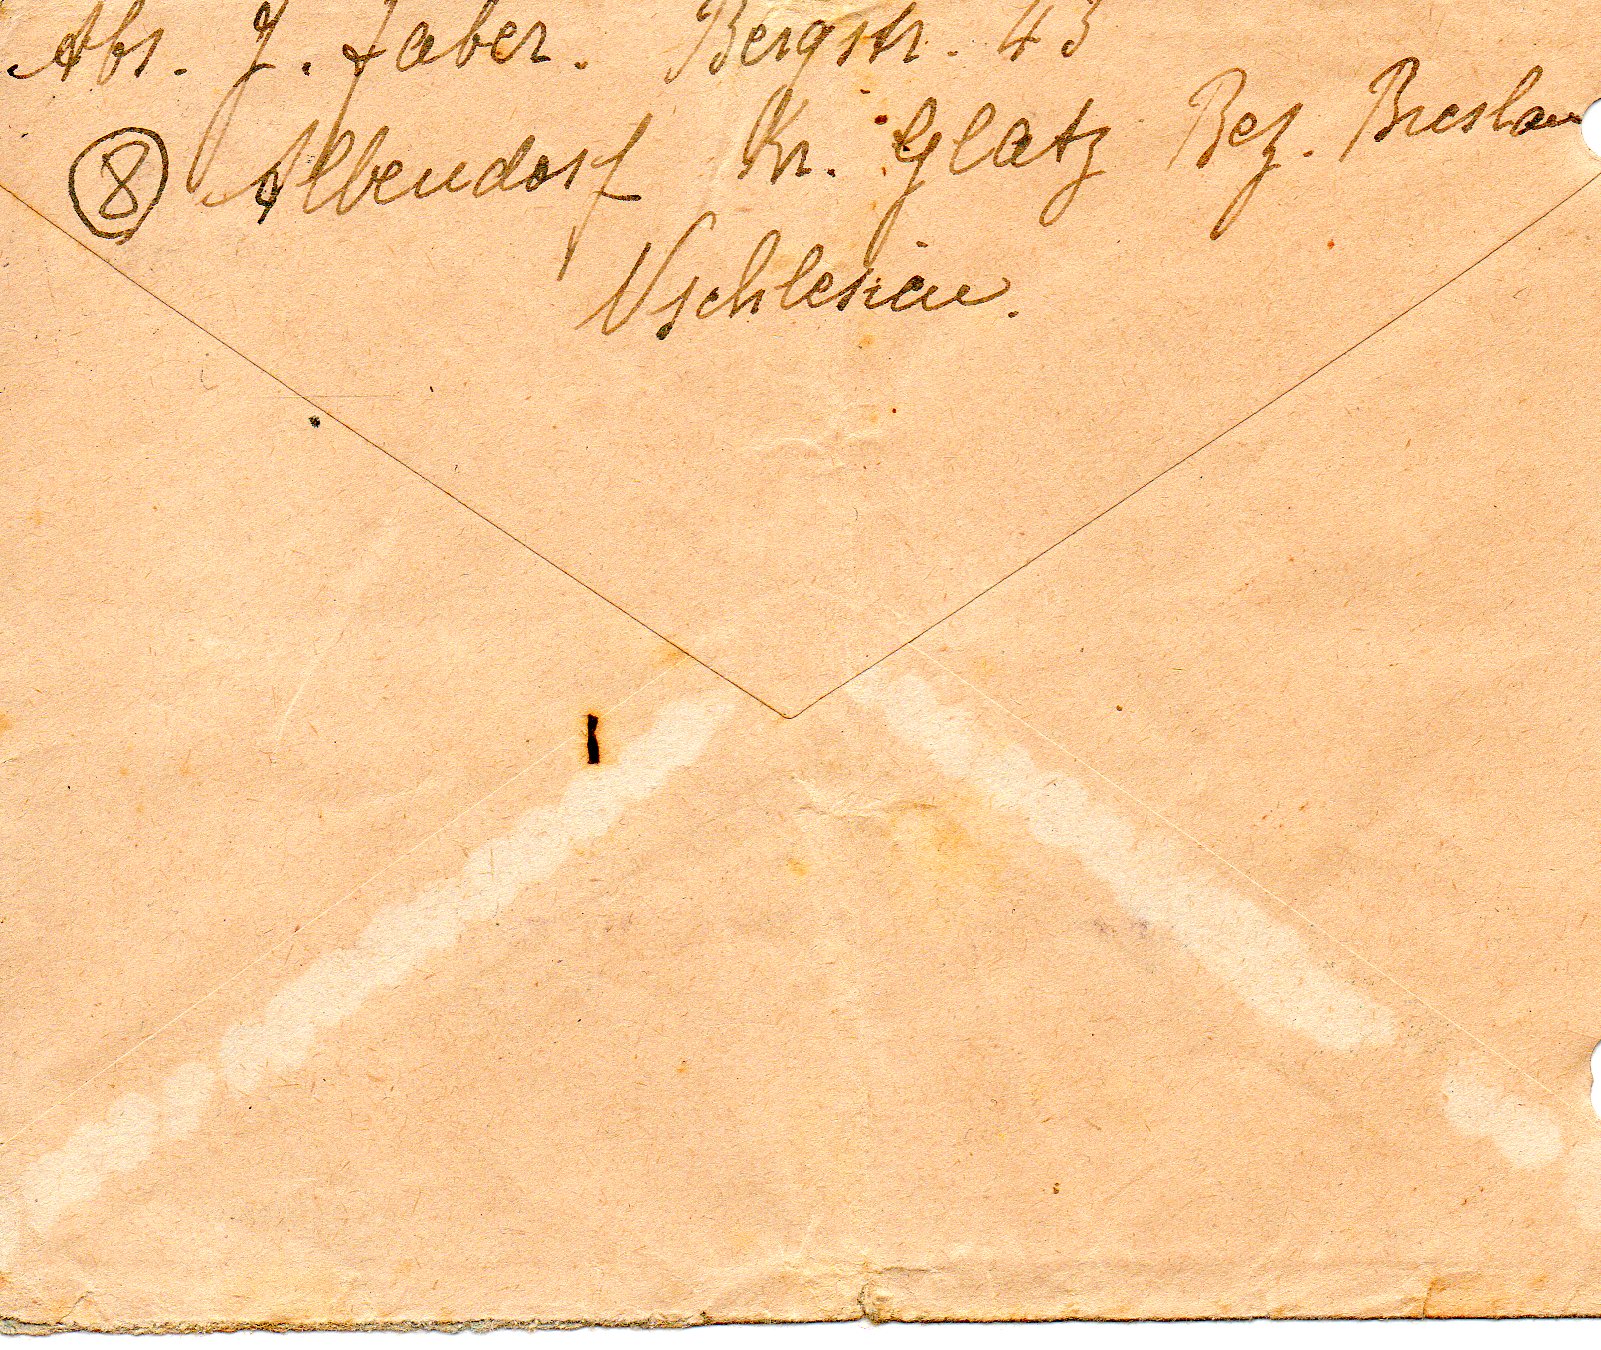 Abs. J. Faber. Bergstr. 43
8 Albendorf Kr. Glatz Bez. Breslau
N/schlesien.